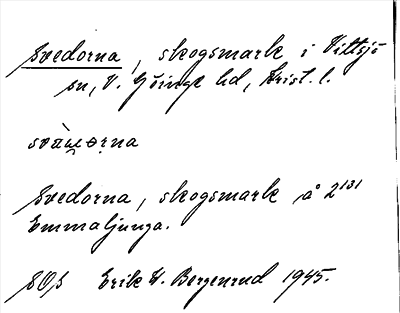 Svedorna, skogsmark i Vittsjö
sn, V. Göinge hd, Krist. l.
Svedorna, skogsmark å 2¹³¹
Emmaljunga.
Erik H. Bergenrud 1945.